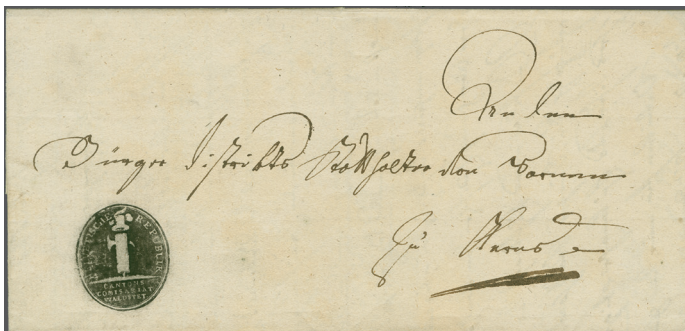 An den
Bürger Distrikts Statthalter von Sarnen
zu Kerns
HELVETISCHE REPUBLIK
CANTONS
COMISARIAT
WALDSTET